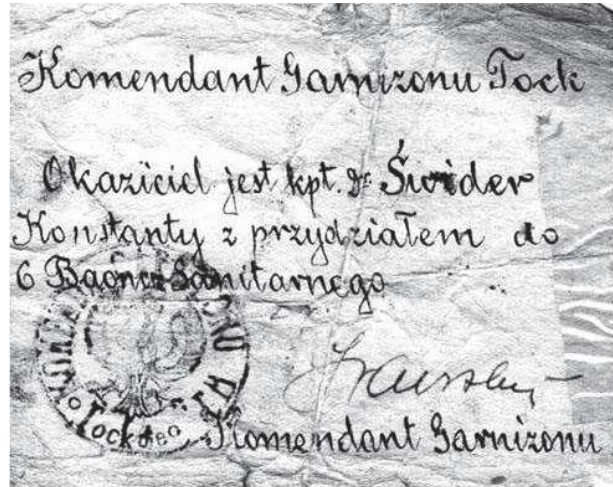 Komendant Garnizonu Tock
Okaziciel jest kpt. dr Świder
Konstanty z przydziałem do
6 Baonu Sanitarnego
Tockoe
Komendant Garnizonu